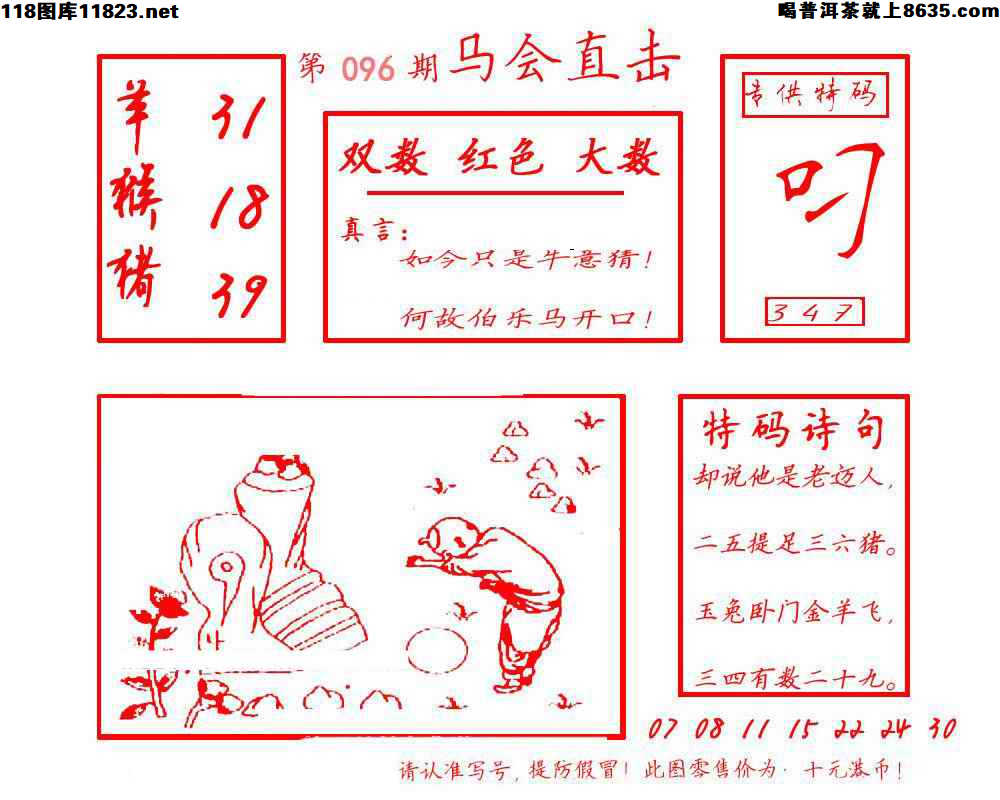 118图库11823.net
喝普洱茶就上8635.com
第 096 期 马会直击
羊 31
猴 18
猪 39
双数 红色 大数
真言:
如今只是牛意猜!
何故伯乐马开口!
专供特码
叼
3 4 7
特码诗句
却说他是老迈人,
二五提足三六猪。
玉兔卧门金羊飞,
三四有数二十九。
07 08 11 15 22 24 30
请认准写号,提防假冒!此图零售价为·十元港币!